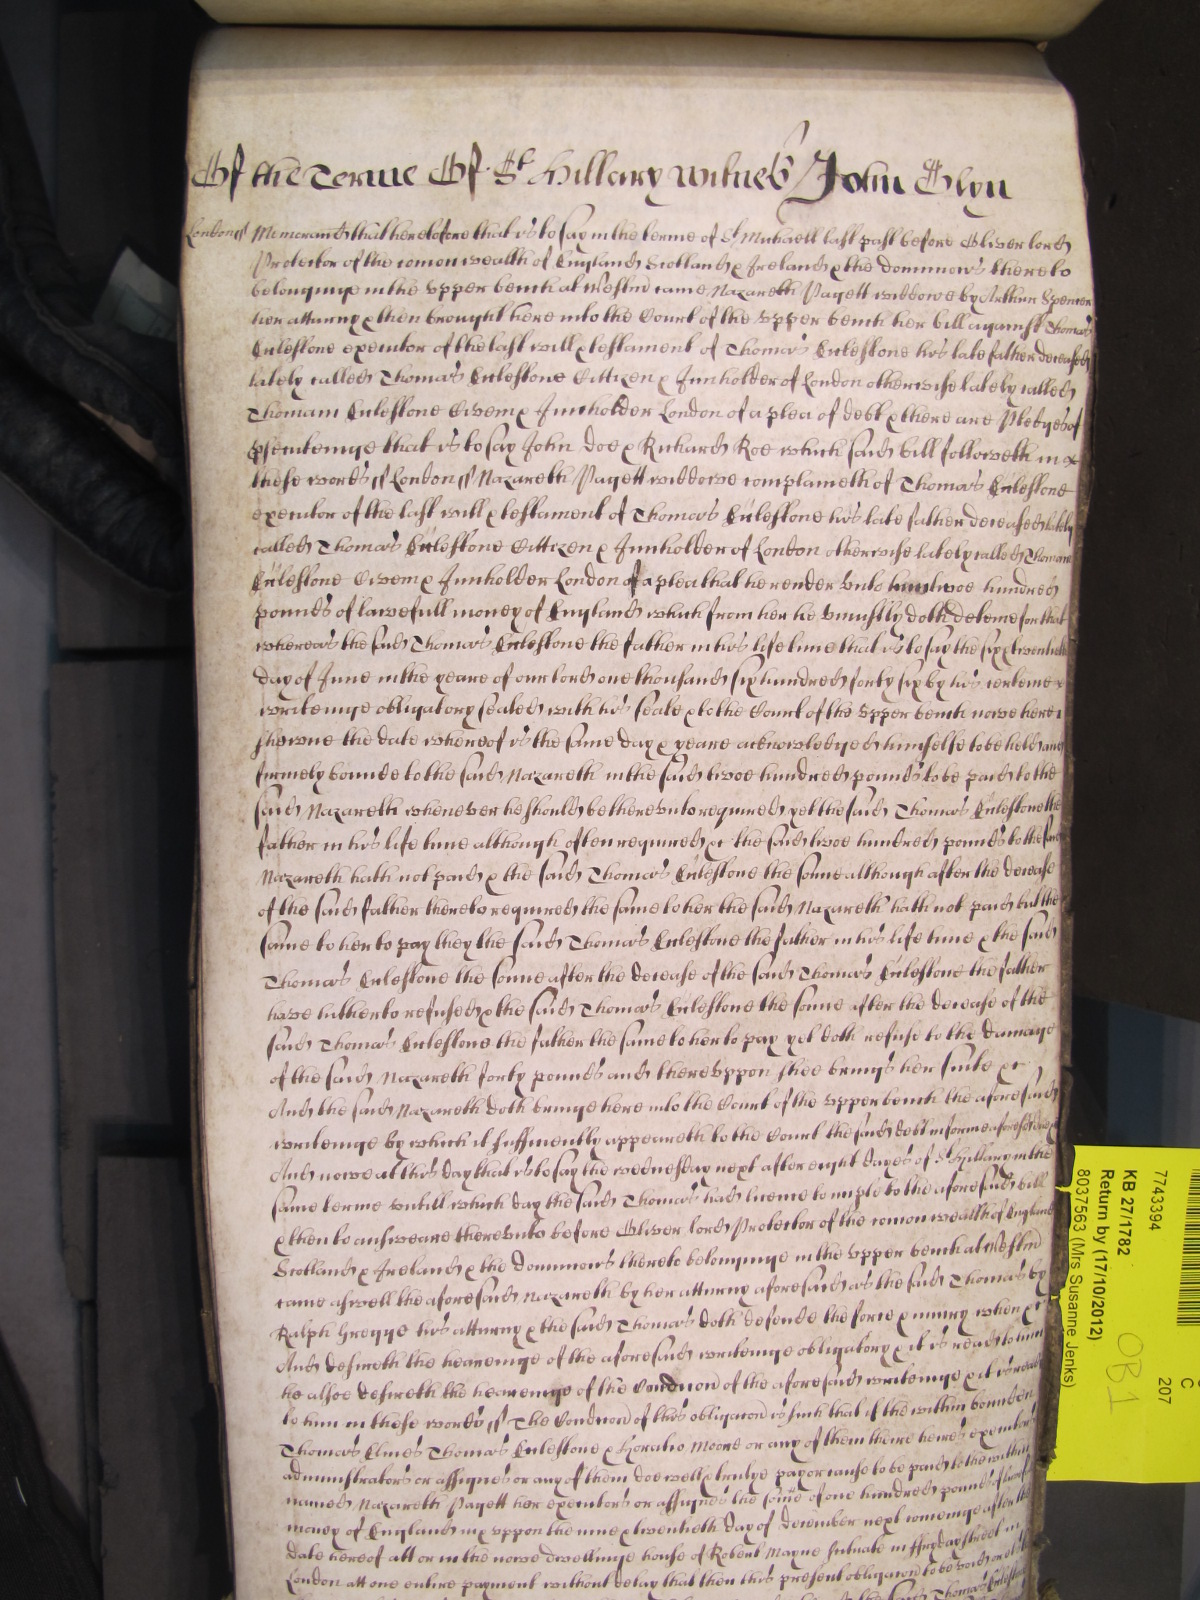 Of the Terme Of St Hillary witnes John Glyn
London // Memorand that heretofore that is to say in the terme of St Michaell last past before Oliver lord
Protector of the comon wealth of England Scotland & Ireland & the dominions thereto
belonginge in the upper bench at Westmr came Nazareth Pagett widdowe by Arthur Spencer
her atturny & then brought here into the Court of the upper bench her bill against Thomas
Ecclestone executor of the last will & testament of Thomas Ecclestone his late father deceased
lately called Thomas Ecclestone Cittizen & Innholder of London otherwise lately called
Thomam Ecclestone Civem & Innholder London of a plea of debt & there are Pledges of
psecutinge that is to say John Doe & Richard Roe which said bill followeth in
these words // London // Nazareth Pagett widdowe complaineth of Thomas Ecclestone
executor of the last will & testament of Thomas Ecclestone his late father deceased lately
called Thomas Ecclestone Cittizen & Innholder of London otherwise lately called Thomam
Ecclestone Civem & Innholder London of a plea that he render unto twoe hundred
pounds of lawfull money of England which from her he uniustly doth deteine for that
whereas the said Thomas Ecclestone the father in his life time that is to say the six & twentieth
day of June in the yeare of our lord one thousand six hundred forty six by his certeine
writeinge obligatory sealed with his seale & to the Court of the upper bench nowe here
shewne the date whereof is the same day & yeare acknowledged himselfe to be held and
firmely bounde to the said Nazareth in the said twoe hundred pounds to be paid to the
said Nazareth whenever he should be thereunto required yet the said Thomas Ecclestone the
father in his life time although often required &c the said twoe hundred pounds to the said
Nazareth hath not paid & the said Thomas Ecclestone the sonne although after the decease
of the said father thereto required the same to her the said Nazareth hath not paid but the
same to her to pay they the said Thomas Ecclestone the father in his life time & the said
Thomas Ecclestone the sonne after the decease of the said Thomas Ecclestone the father
have hitherto refused & the said Thomas Ecclestone the sonne after the decease of the
said Thomas Ecclestone the father the same to her to pay yet doth refuse to the damage
of the said Nazareth forty pounds and thereuppon shee brings her suite &c
And the said Nazareth doth bringe here into the Court of the upper bench the aforesaid
writeinge by which it sufficiently appeareth to the Court the said debt in forme aforesaid
And nowe at this day that is to say the wednesday next after eight dayes of St Hillary in the
same terme untill which day the said Thomas had licence to imple to the aforesaid bill
& then to answeare thereunto before Oliver lord Protector of the comon wealth of England
Scotland & Ireland & the dominions thereto belonginge in the upper bench at Westmr
came aswell the aforesaid Nazareth by her atturny aforesaid as the said Thomas by
Ralph Gregge his atturny & the said Thomas doth defende the force & iniury when &c
And desireth the heareinge of the aforesaid writeinge obligatory & it is read to him
he alsoe desireth the heareinge of the Condicion of the aforesaid writeinge & it is read
to him in these words // The Condicion of this obligacion is such that if the within bounden
Thomas Elmes Thomas Ecclestone & Horatio Moore or any of them theire heires executors
administrators or assignes or any of them doe well & trulye pay or cause to be paid to the within
named Nazareth Pagett her executors or assignes the some of one hundred pounds of lawfull
money of England in & uppon the nine & twentieth day of December next comeinge after the
date hereof att or in the nowe dwellinge house of Robert Mayne scituate in ffryday street in
London att one entire payment without delay that then this present obligacion to be void or els
7743394
KB 27/1782
Return by (17/10/2012)
8037563 (Mrs Susanne Jenks)
C
207
OB 1